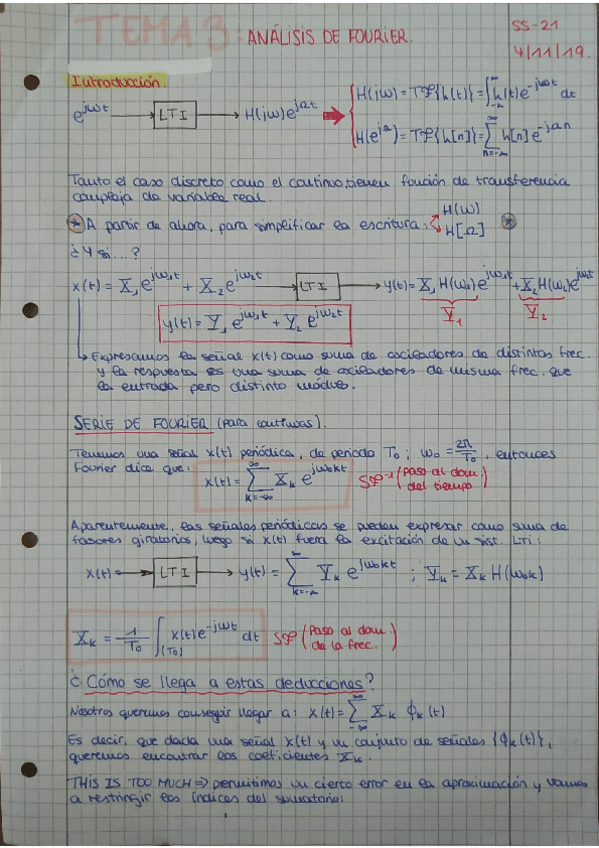 TEMA 3: ANÁLISIS DE FOURIER.
SS-21
4/11/19.
Introducción.
e^{jωt} → LTI → H(jω)e^{jΩt} ⇒ { H(jω) = TF{h(t)} = ∫_{-∞}^{∞} h(t)e^{-jωt} dt
H(e^{jΩ}) = TF{h[n]} = Σ_{n=-∞}^{∞} h[n] e^{-jΩn}
Tanto el caso discreto como el continuo, tienen función de transferencia
compleja de variable real.
* A partir de ahora, para simplificar la escritura: H(ω) *
H[Ω]
¿Y si...?
x(t) = X₁e^{jω₁t} + X₂e^{jω₂t} → LTI → y(t) = X₁H(ω₁)e^{jω₁t} + X₂H(ω₂)e^{jω₂t}
Y₁ Y₂
y(t) = Y₁ e^{jω₁t} + Y₂ e^{jω₂t}
↳ Expresamos la señal x(t) como suma de osciladores de distintas frec.
y la respuesta es una suma de osciladores de misma frec. que
la entrada pero distinto módulo.
SERIE DE FOURIER (para continuas).
Tenemos una señal x(t) periódica, de periodo T₀; ω₀ = 2π/T₀, entonces
Fourier dice que:
x(t) = Σ_{k=-∞}^{∞} X_k e^{jω₀kt} SSF⁻¹ (Paso al dom. del tiempo)
Aparentemente, las señales periódicas se pueden expresar como suma de
fasores giratorios, luego si x(t) fuera la excitación de un sist. LTI:
x(t) → LTI → y(t) = Σ_{k=-∞}^{∞} Y_k e^{jω₀kt} ; Y_k = X_k H(ω₀k)
X_k = 1/T₀ ∫_{(T₀)} x(t)e^{-jωt} dt SSF (Paso al dom. de la frec.)
¿Cómo se llega a estas deducciones?
Nosotros queremos conseguir llegar a: x(t) = Σ_{-∞}^{∞} X_k ϕ_k(t)
Es decir, que dada una señal x(t) y un conjunto de señales {ϕ_k(t)},
queremos encontrar los coeficientes X_k.
THIS IS TOO MUCH ⇒ permitimos un cierto error en la aproximación y vamos
a restringir los índices del sumatorio: